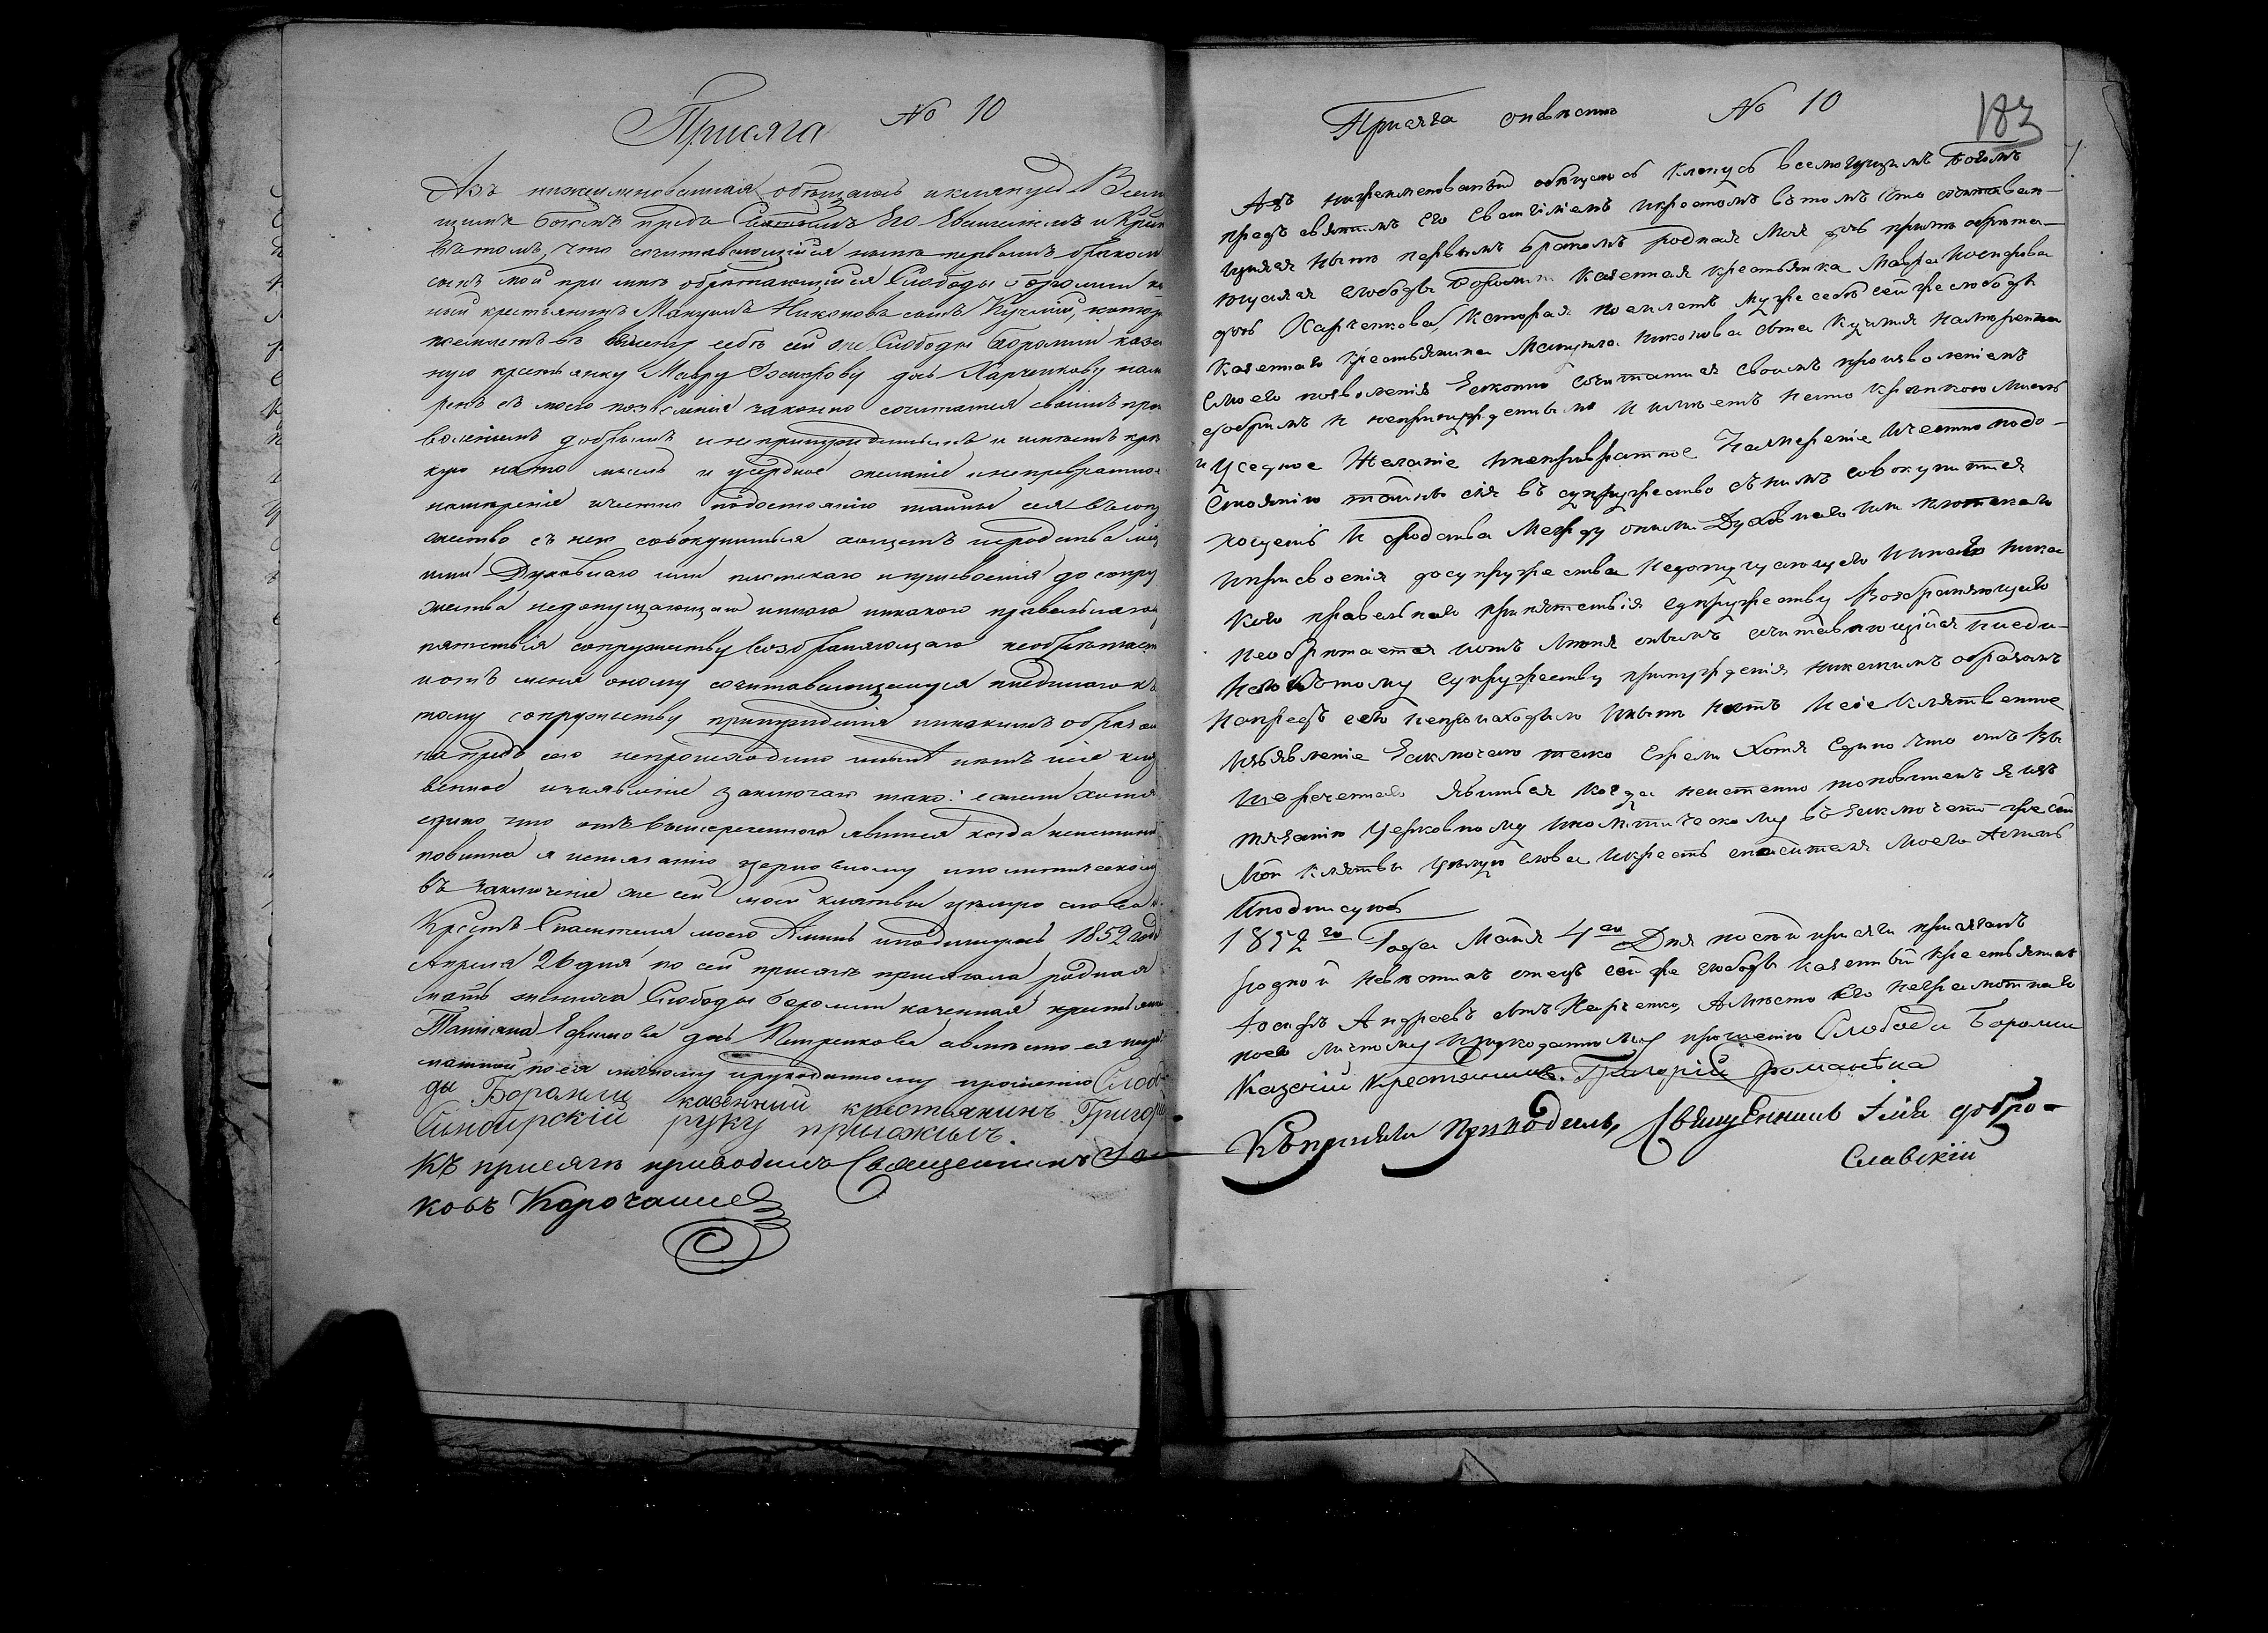 Присяга № 10
Азъ нижеименованная обѣщаюсь и клянусь Всемо
щимъ Богомъ предъ Святымъ Его Евангелiемъ и Крес
въ томъ, что сочитавающiйся нынѣ первымъ бракомъ
сынъ мой при мнѣ обрѣтающiйся Слободы Боромли ка
ный крестьянинъ Мануилъ Никоновъ сынъ Кучмiй, котор
поемлетъ въ невѣсту себѣ сей же Слободы Боромли казен
ную крестьянку Мавру Iосифову дочь Харченкову наме
ренъ съ моего позволенiя законно сочитатися своимъ про
волениемъ добрымъ и непринужденнымъ и имѣетъ крѣ
кую на то мысль и усердное желанiе и непревратное
намѣренiе и честно по достоянiю тайны сея въ супру
жество съ нею совокупиться хощетъ и родства меж
ими Духовнаго или плотскаго и присвоенiя до супру
жества недопущающаго и инаго никакого правильнаго
пятствiя сопружеству возбраняющаго необрѣтается
и отъ меня оному сочитавающемуся ниединаго къ
тому сопружеству принужденiя никакимъ образомъ
напредъ сего непроисходило и нынѣ нѣтъ и сiе кля
венное изъявленiе заключаю тако: ежели хотя
едино что отъ вышереченного явится когда неистинно
повинна я истязанiю церковному и политическому
въ заключенiе же сей моей клятвы цѣлую слова и
Крестъ Спасителя моего Аминь и подпишусь 1852 года
Апреля 26 дня по сей присягѣ присягала родная
мать жениха Слободы Боромли казенная крестьянка
Татiана Ефимова дочь Петренкова а вмѣсто ея негра
матной по ея личному и рукоданному прошенiю Слобо
ды Боромли казенний крестьянинъ Григорiй
Синбирскiй руку приложилъ.
Къ присягѣ приводилъ Священникъ Iа
ковъ Корочанцев
Присяга о невѣсте № 10
183
Азъ нижеименованный обѣщаюсь Клянусь всемогущимъ Богомъ
предъ святымъ Его Евангелiемъ и крестомъ въ томъ что сочитаваю-
щаяся нынѣ первымъ бракомъ родная Моя дочь при мнѣ обрѣта-
ющаяся слободы Боромли Казенная крестьянка Мавра Иосифова
дочь Харченкова, Которая поемлетъ мужа себѣ сей же слободы
Казенного Крестьянина Мануила Никонова сына Кучмия намѣренна
Смоего позволенiя Законно Сочитатися своимъ произволениемъ
добримъ и непринужденнымъ и имѣетъ на то крѣпкою мисль
и Уседное Желанiе инепревратное Намѣренiе ичестно подо-
Стоянiю тайны сiя въ супружество съ нимъ совокупитися
хощетъ И сродства Между оними Духовнаго или плотскаго
иприсвоенiя досупружества недопущающаго и инаго ника
кого правельнаго препятствiя Супружеству Возбраняющаго
необритается иотъ Меня онимъ сочитавающiйся ниеди-
наго Кътому Супружеству принужденiя никакимъ образомъ
Напредъ сего непроизходило Инынѣ Нѣтъ И сiе Клятвенное
изъявленiе Заключаю тако Ежели Хотя Едино Что отъ Ви
шереченаго Явиться когда неистенно топовиненъ я изъ
тязанiю Церковному ииполитическому въ заключенiе же сей
Моей клятвы Цѣлую слова Икресть спасителя Моего Аминь
Иподписуюсь
1852го Года Мания 4го Дня по сей присяги присягалъ
родной невѣстинъ отецъ сей же слободы Казенный Крестьянинъ
Iосифъ Андреевъ сынъ Харченко, А вмѣсто Его неграмотнаго
поего личному ирукоданному прошению Слободи Боромли
Казений Крестянинъ. Григорiй Романѣка
Къ присяги приводилъ, Священникъ Iлiя добро-
Славскiй